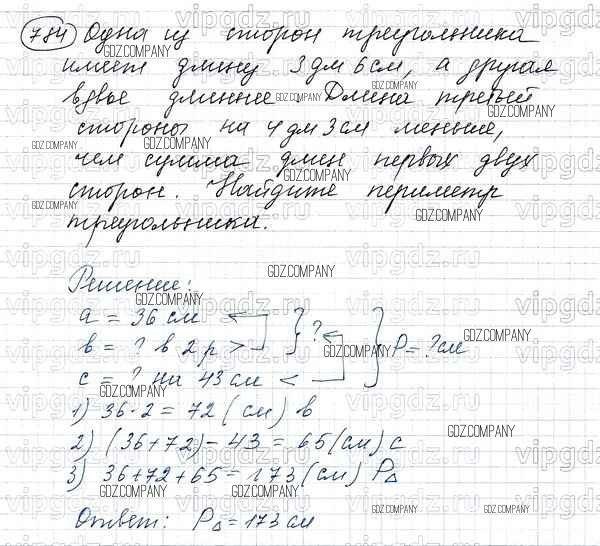 784 Одна из сторон треугольника
имеет длину 3 дм 6 см, а другая
вдвое длиннее. Длина третьей
стороны на 4 дм 3 см меньше,
чем сумма длин первых двух
сторон. Найдите периметр
треугольника.
Решение:
a = 36 см
в = ? в 2 р > } ?
c = ? на 43 см < } P = ? см
1) 36·2 = 72 (см) в
2) (36+72) - 43 = 65 (см) c
3) 36+72+65 = 173 (см) P△
Ответ: P△ = 173 см